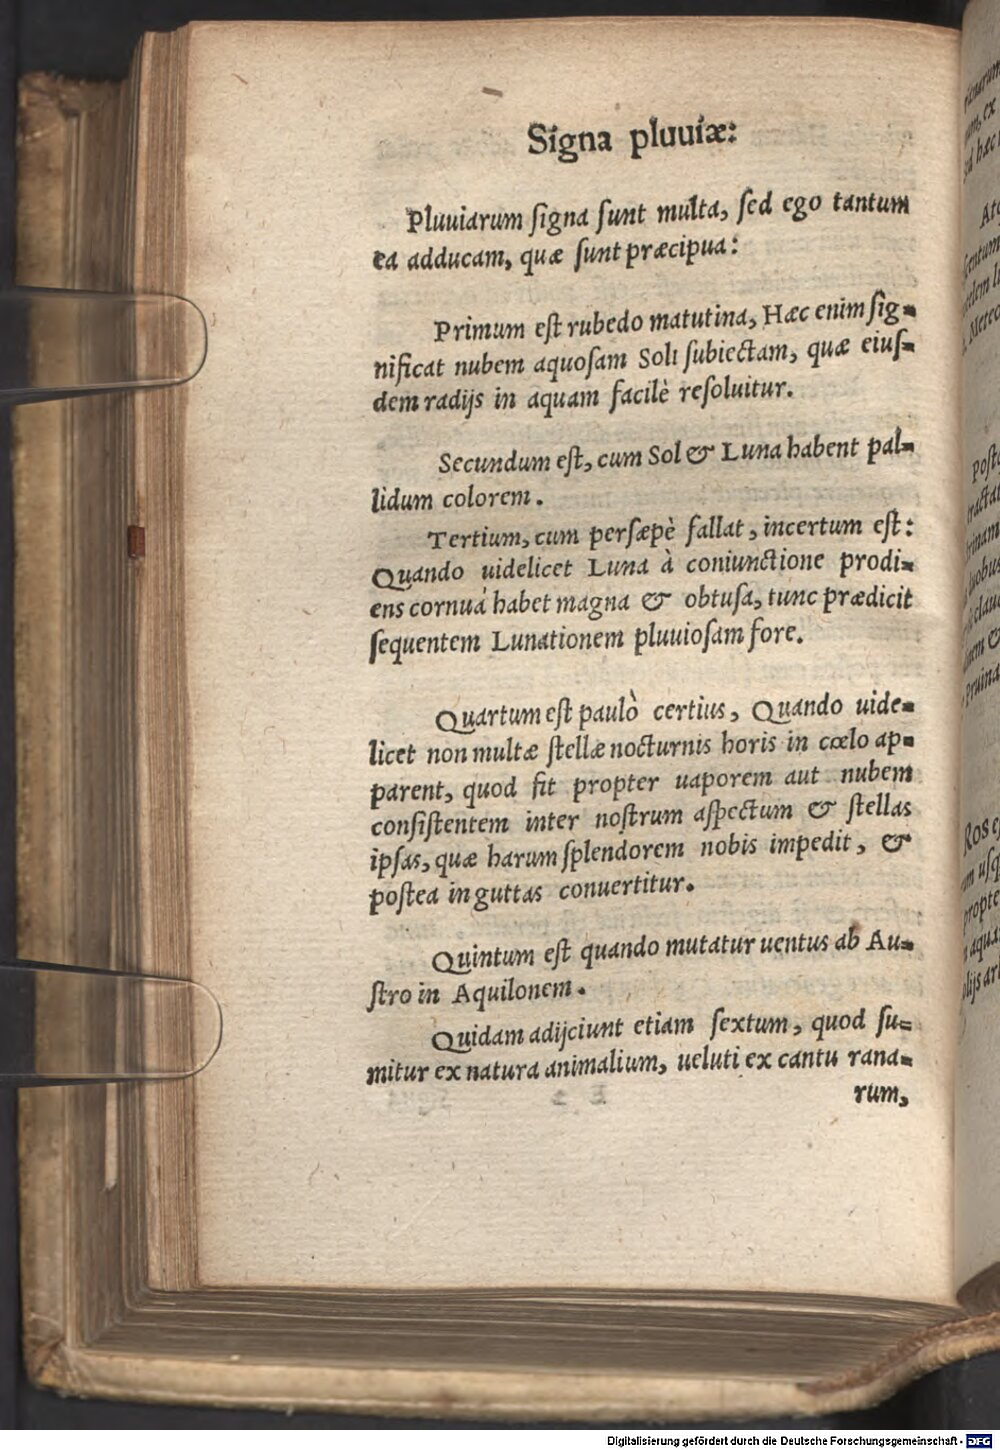 Signa pluuiæ:
Pluuiarum ſigna ſunt multa, ſed ego tantum
ea adducam, quæ ſunt præcipua:
Primum eſt rubedo matutina, Hæc enim ſig-
nificat nubem aquoſam Soli ſubiectam, quæ eiuſ-
dem radijs in aquam facilè reſoluitur.
Secundum eſt, cum Sol & Luna habent pal-
lidum colorem.
Tertium, cum perſæpè fallat, incertum eſt:
Quando uidelicet Luna à coniunctione prodi-
ens cornua habet magna & obtuſa, tunc prædicit
ſequentem Lunationem pluuioſam fore.
Quartum eſt paulò certius, Quando uide-
licet non multæ ſtellæ nocturnis horis in cœlo ap-
parent, quod fit propter uaporem aut nubem
conſiſtentem inter noſtrum aſpectum & ſtellas
ipſas, quæ harum ſplendorem nobis impedit, &
poſtea in guttas conuertitur.
Quintum eſt quando mutatur uentus ab Au-
ſtro in Aquilonem.
Quidam adijciunt etiam ſextum, quod ſu-
mitur ex natura animalium, ueluti ex cantu rana-
rum,
Digitalisierung gefördert durch die Deutsche Forschungsgemeinschaft - DFG